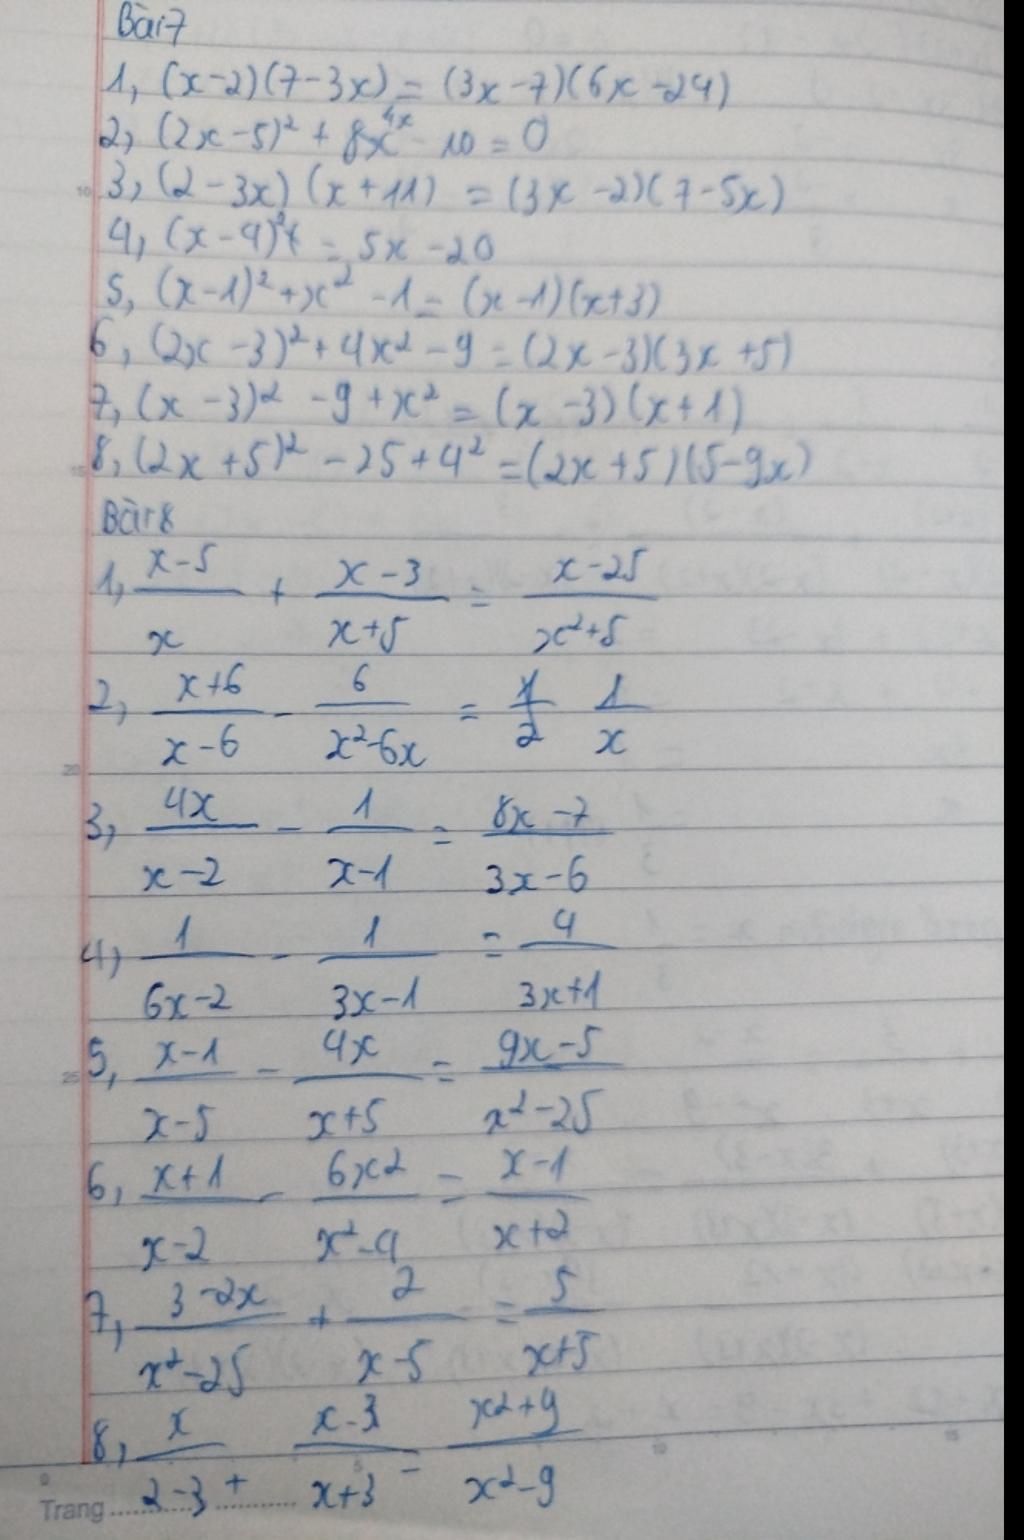 Bài 7
1, (x-2)(7-3x) = (3x-7)(6x-24)
2, (2x-5)² + 8x - 10 = 0
3, (2-3x)(x+11) = (3x-2)(7-5x)
4, (x-4)² = 5x-20
5, (x-1)² + x² - 1 = (x-1)(x+3)
6, (2x-3)² + 4x² - 9 = (2x-3)(3x+5)
7, (x-3)² - 9 + x² = (x-3)(x+1)
8, (2x+5)² - 25 + 4² = (2x+5)(5-9x)
Bài 8
1, x-5 / x + x-3 / x+5 = x-25 / x²+5
2, x+6 / x-6 - 6 / x²-6x = 1 / 2 1 / x
3, 4x / x-2 - 1 / x-1 = 8x-7 / 3x-6
4, 1 / 6x-2 - 1 / 3x-1 = 4 / 3x+1
5, x-1 / x-5 - 4x / x+5 = 9x-5 / x²-25
6, x+1 / x-2 - 6x2 / x²-4 = x-1 / x+2
7, 3-2x / x²-25 + 2 / x-5 = 5 / x+5
8, x / 2-3 + x-3 / x+3 = x2+9 / x²-9
Trang